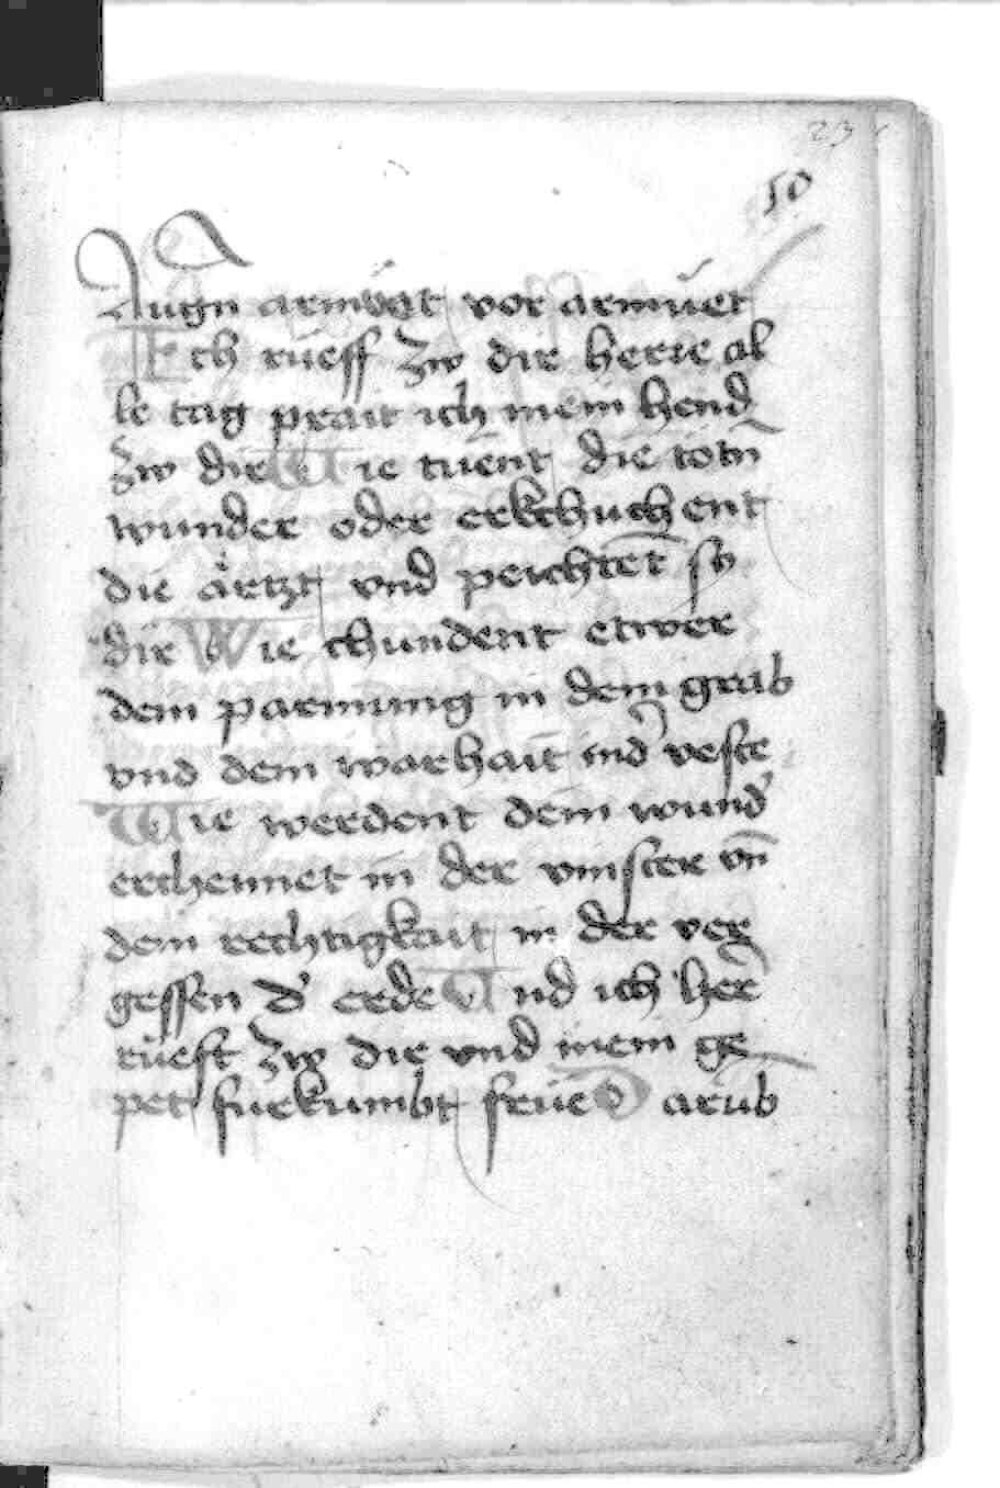 23
10
Augn armüet vor armuet
Ich rueff zw dir herre al
le tag prait ich mein hend
zw dir Wie tuent die totn̄
wunder oder erkchuchent
die ärtzt vnd peichtēt sy
dir Wie chundent etwer
dein parmung in dem grab
vnd dein warhait ind' veste
Wie werdent dein wund'
erchennet in der vinster vn̄
dein rechtigkait in der ver
gessen d' erde Und ich her̄
rueft zw dir vnd mein ge
pet furkumbt frue Darūb